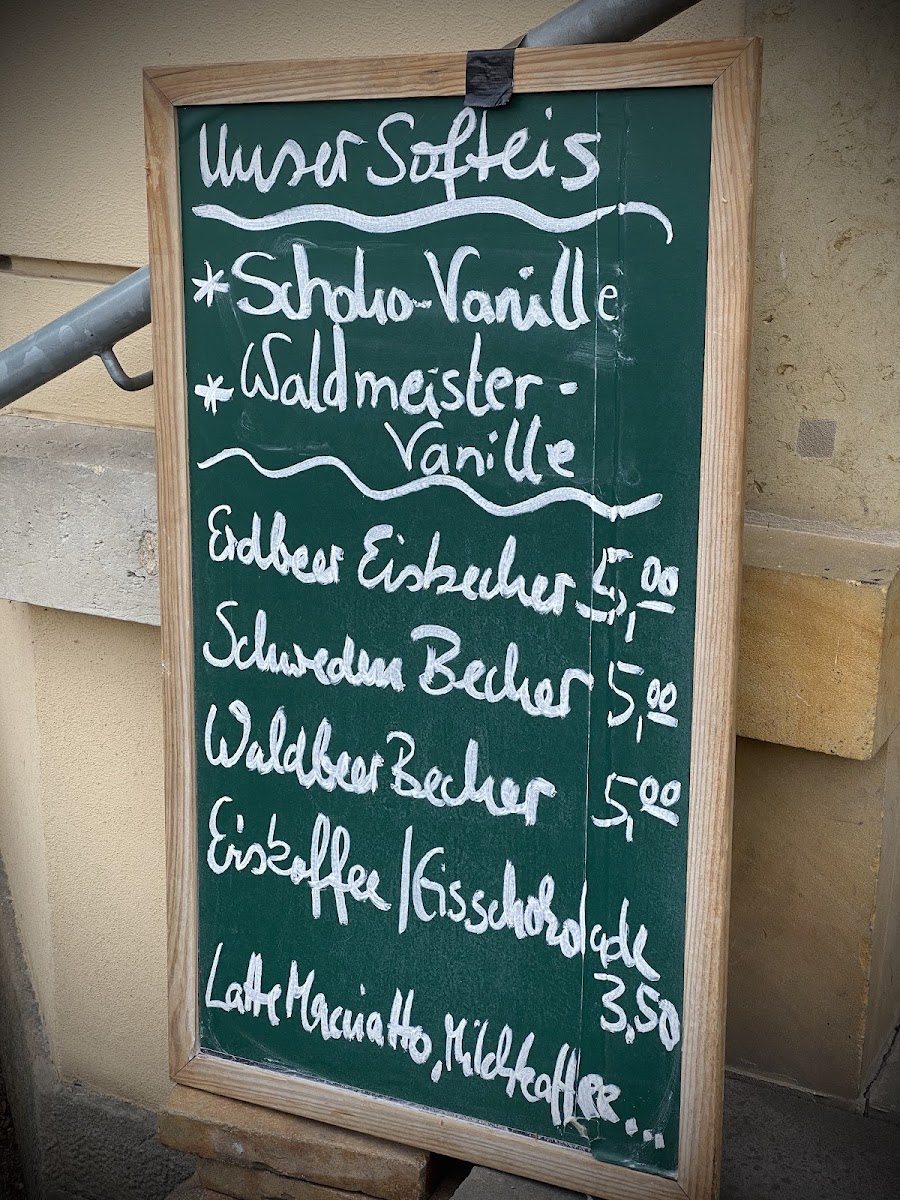 Unser Softeis
* Schoko-Vanille
* Waldmeister-
Vanille
Erdbeer Eisbecher 5,00
Schweden Becher 5,00
Waldbeer Becher 5,00
Eiskaffee/Eisschokolade
3,50
Latte Macciatto, Milchkaffee...